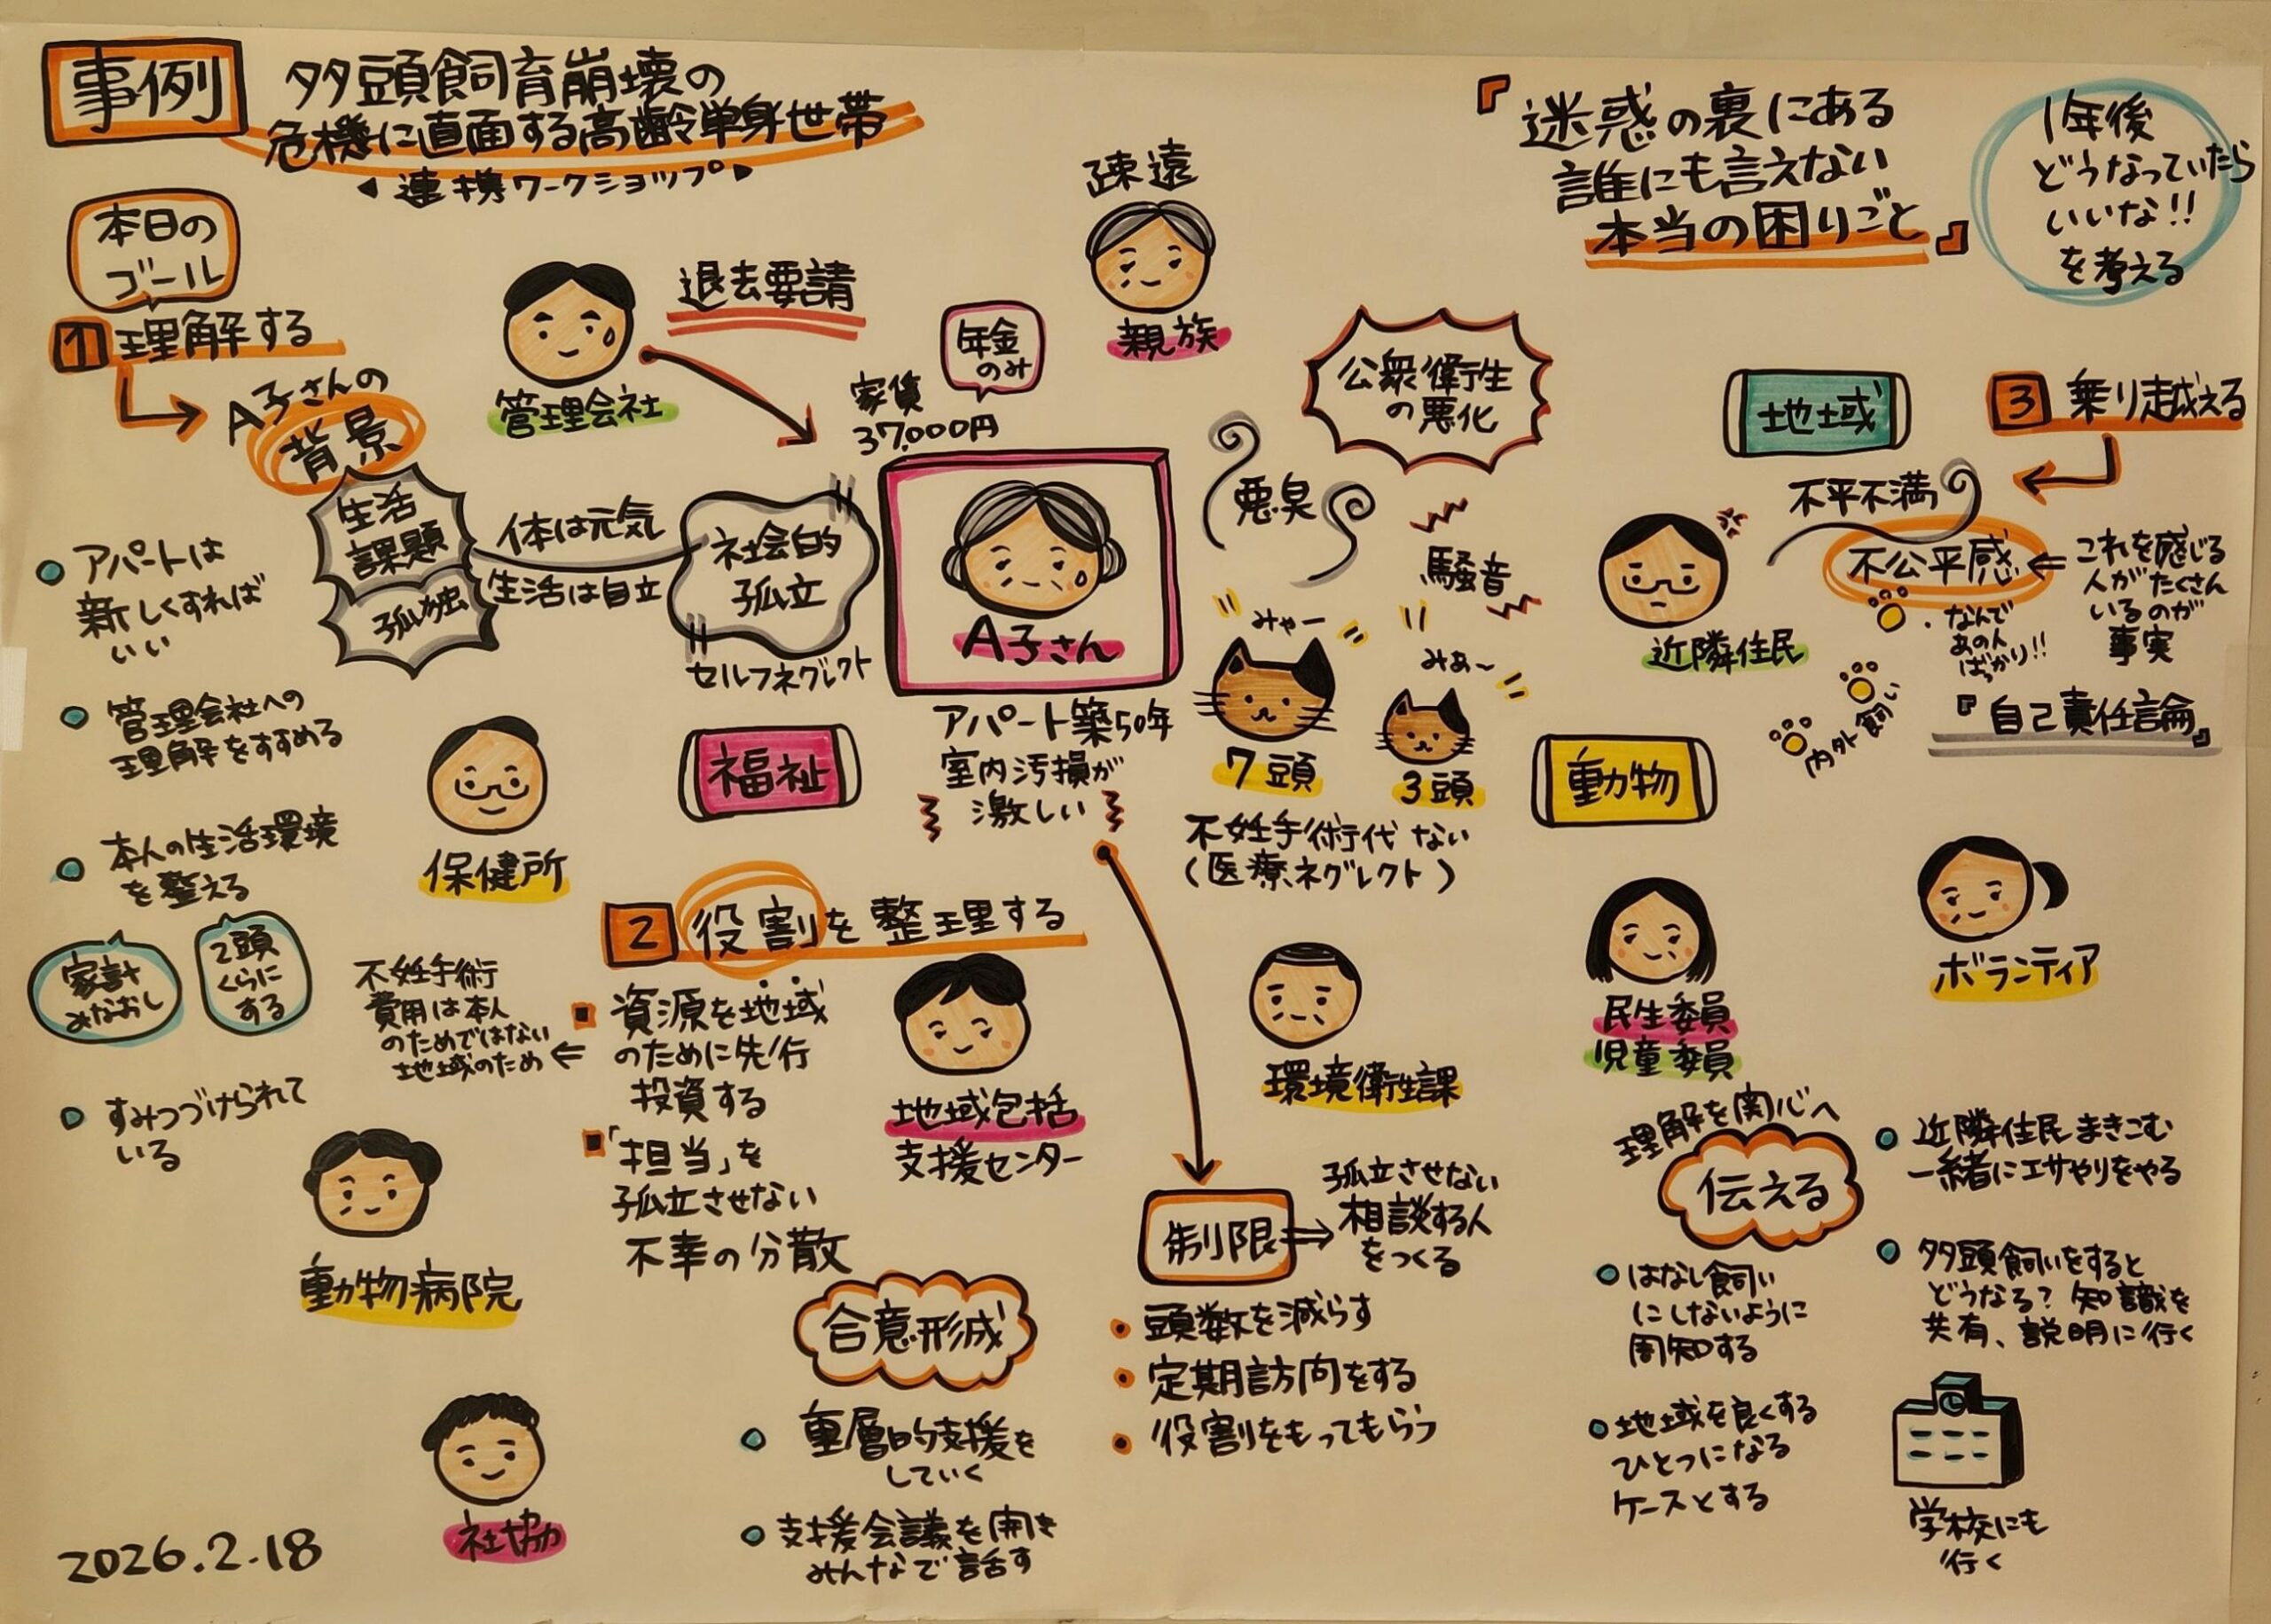 事例
多頭飼育崩壊の
危機に直面する高齢単身世帯
連携ワークショップ
『迷惑の裏にある
誰にも言えない
本当の困りごと』
1年後
どうなっていたら
いいな!!
を考える
本日の
ゴール
1 理解する
A子さんの
背景
生活
課題
孤独
体は元気
生活は自立
社会的
孤立
セルフネグレクト
アパートは
新しくすれば
いい
管理会社への
理解をすすめる
本人の生活環境
を整える
家計
みなおし
2頭
くらいに
する
すみつづけられて
いる
管理会社
退去要請
疎遠
親族
年金
のみ
家賃
37,000円
A子さん
アパート築50年
室内汚損が
激しい
公衆衛生
の悪化
悪臭
騒音
みゃー
みぁ〜
7頭
3頭
不妊手術代 ない
(医療ネグレクト)
地域
3 乗り越える
不平不満
不公平感
これを感じる
人がたくさん
いるのが
事実
・なんで
あの人
ばっかり!!
近隣住民
内外飼い
『自己責任論』
福祉
動物
保健所
2 役割を整理する
資源を地域
のために先行
投資する
不妊手術
費用は本人
のためではない
地域のため
「担当」を
孤立させない
不幸の分散
地域包括
支援センター
環境衛生課
民生委員
児童委員
ボランティア
動物病院
合意形成
重層的支援を
していく
支援会議を開き
みんなで話す
制限
孤立させない
相談する人
をつくる
頭数を減らす
定期訪問をする
役割をもってもらう
理解を関心へ
伝える
はなし飼い
にしないように
周知する
地域を良くする
ひとつになる
ケースとする
近隣住民まきこむ
一緒にエサやりをやる
多頭飼いをすると
どうなる? 知識を
共有、説明に行く
学校にも
行く
社協
2026.2.18